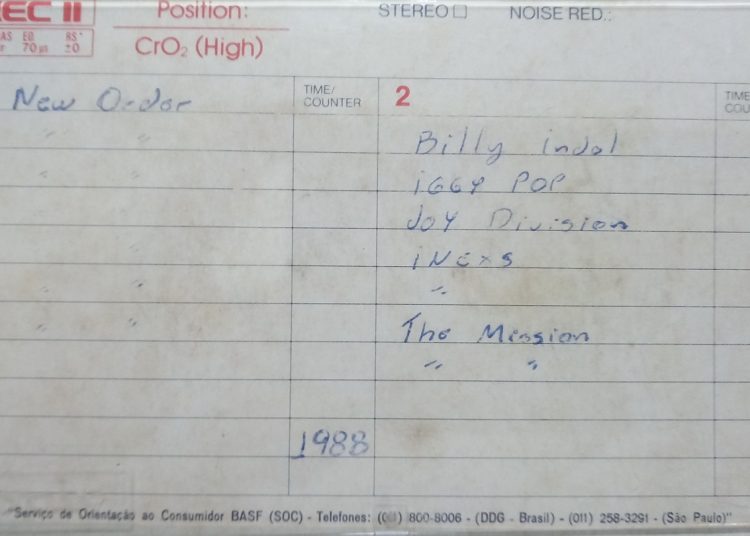 EC II
Position:
STEREO □
NOISE RED.:
AS EQ BS*
70 µs ±0
CrO₂ (High)
TIME/
COUNTER
2
TIME
COU
New Order
" "
Billy indol
" "
iGGY POP
JOY Division
" "
iNExs
" "
"
" "
The Mission
" "
1988
"Serviço de Orientação ao Consumidor BASF (SOC) - Telefones: (0 ) 800-8006 - (DDG - Brasil) - (011) 258-3291 - (São Paulo)"